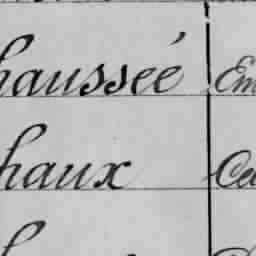 haussée Em
haux Ce
h